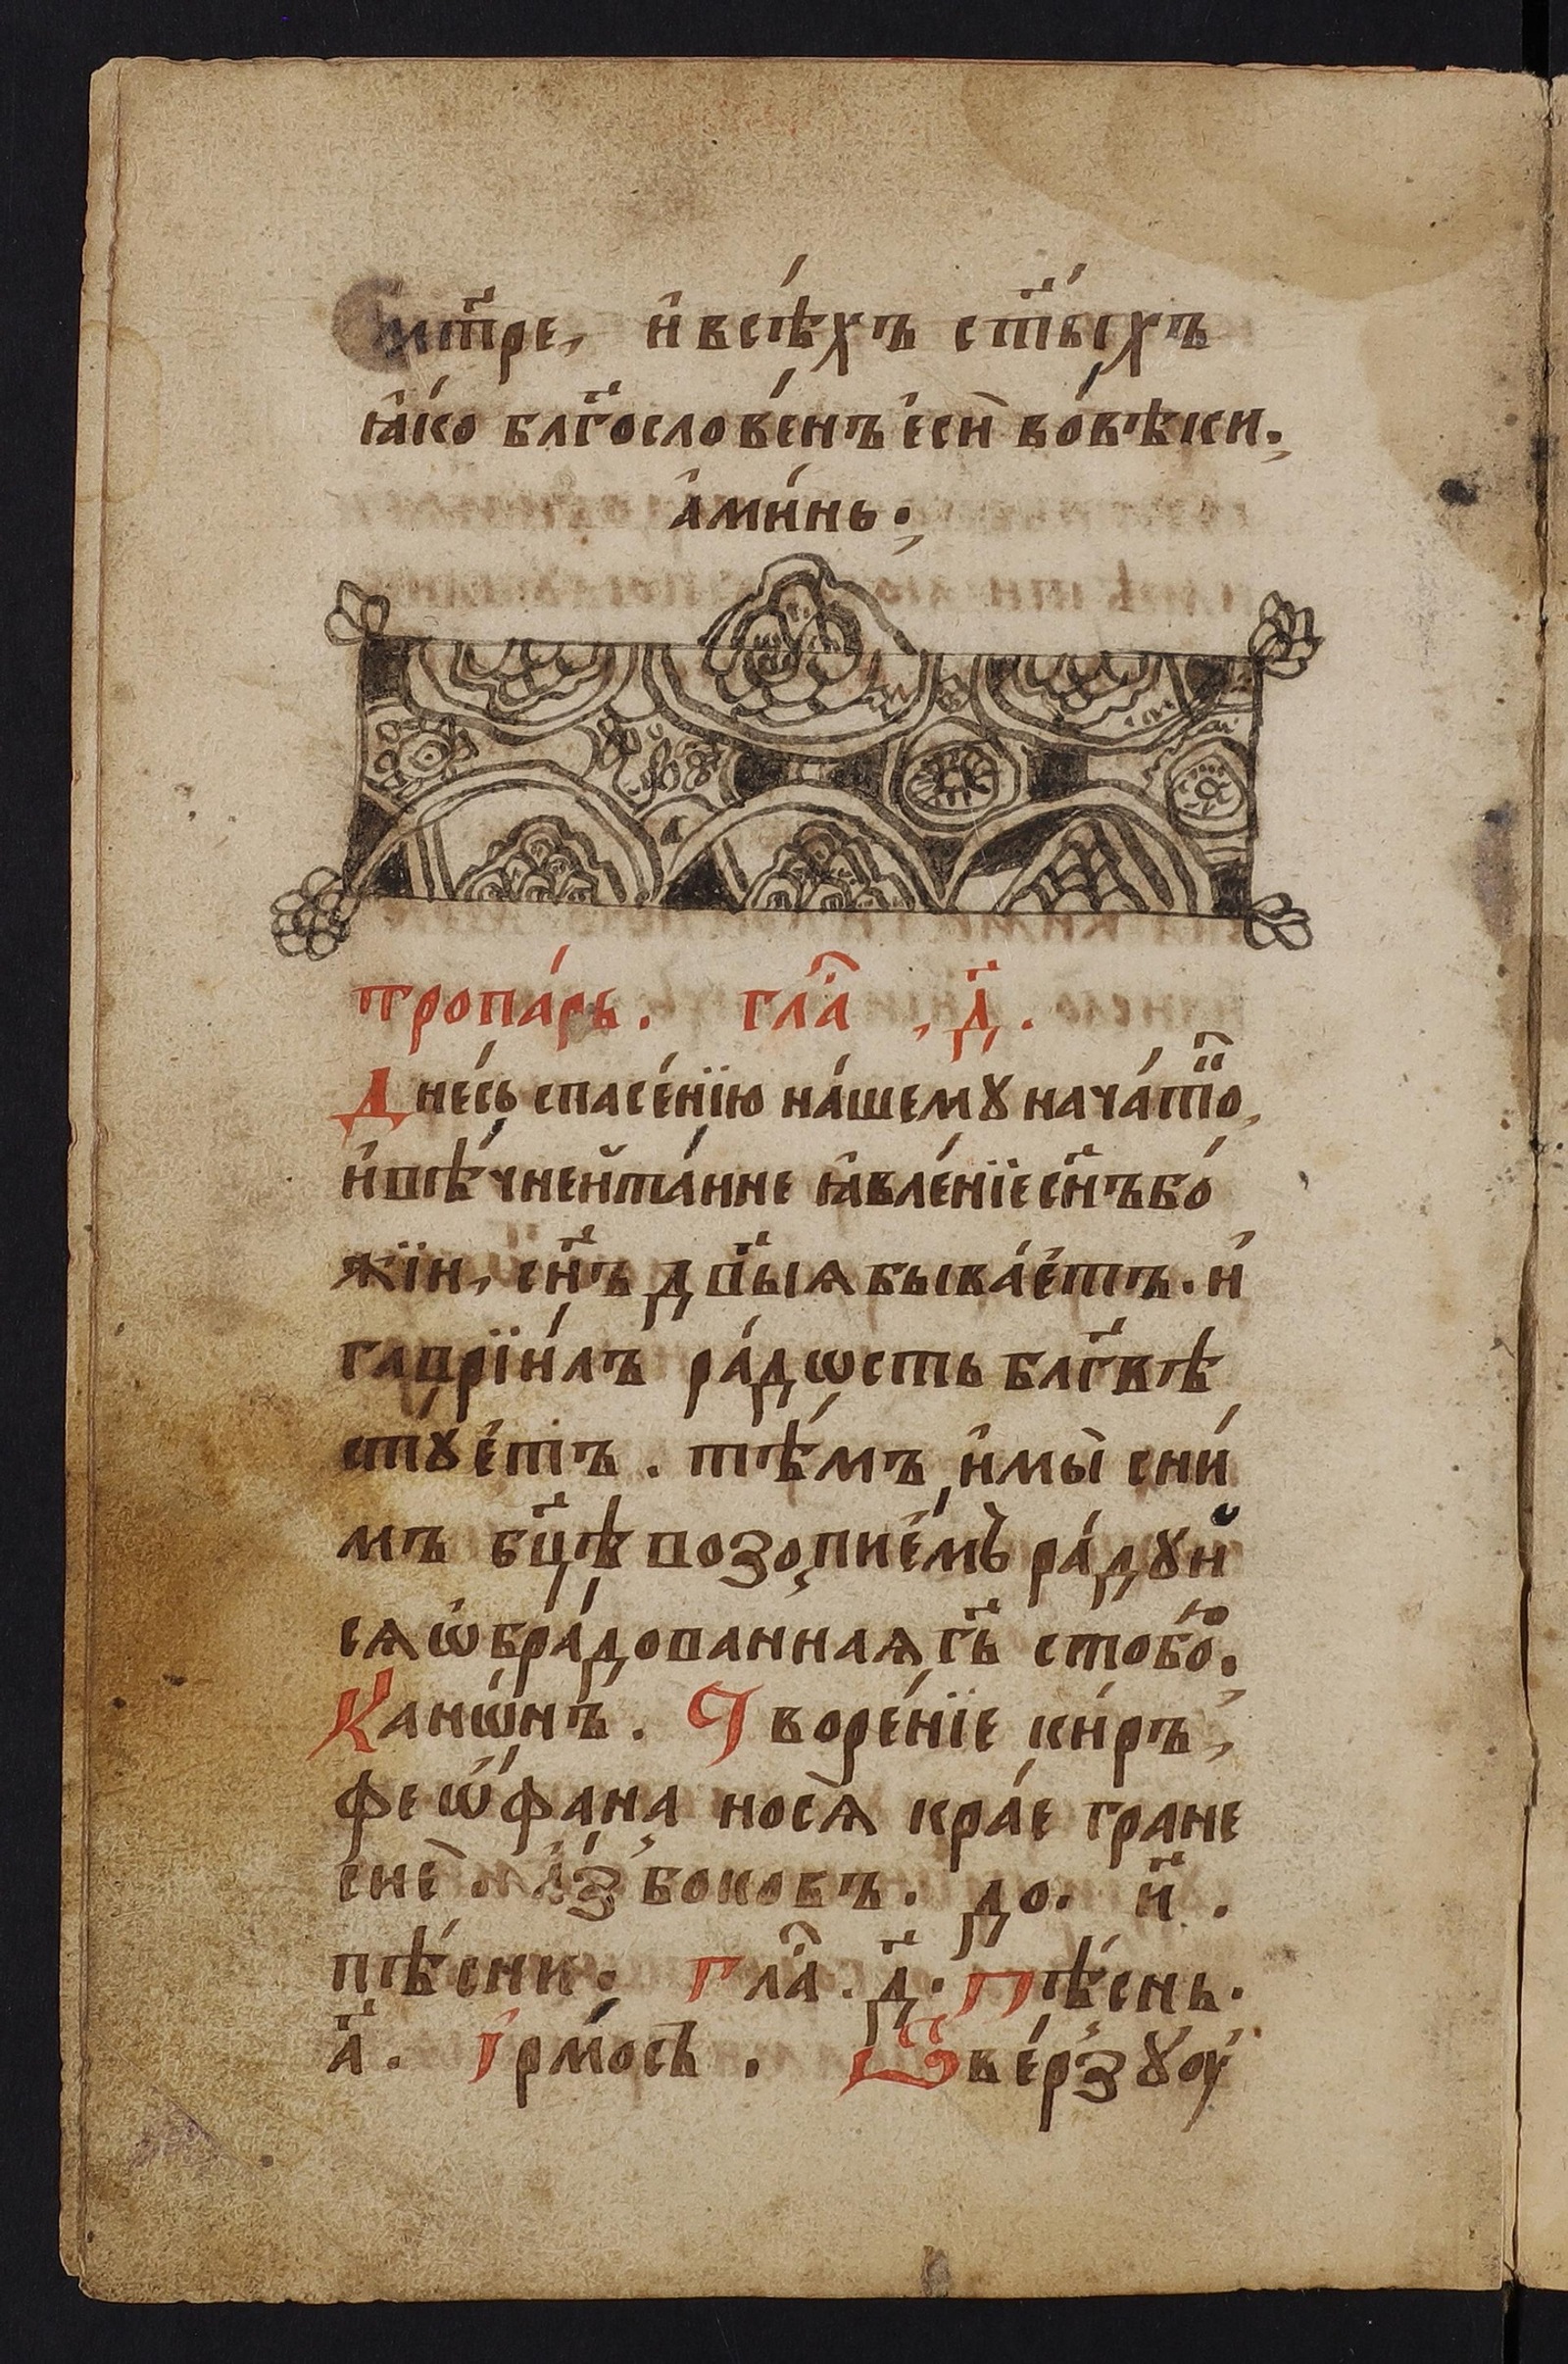 мт҃ре, и҆ всѣ́хъ ст҃ы́хъ
ꙗ҆́ко блг҃ослове́нъ є҆сѝ во́вѣки.
а҆ми́нь.
тропа́рь. гла̑ , д҃.
Дне́сь спасе́нїю на́шемꙋ нача́тⷪ҇о,
и҆ вѣ́чнеи̂та́нне ꙗ҆вле́нїе сн҃ъ бо́
жїи, сн҃ъ дв҃ыѧ быва́е́тъ. и҆
гаврїи́лъ ра́дѡсть блг҃вѣ
стꙋе́тъ. тѣ́мъ и҆мы̀ сни́
мъ бц҃ѣ возопие́мъ ра́дꙋй
сѧ ѡ҆бра́дованнаѧ гь҃ стобо́ю.
Канѡ́нъ. Творе́нїе ки́ръ,
феѡ́фана нося̀ кра́е гране
снѐ а҆́збоковъ. до. и҃.
пѣ́сни. Гла̑. д҃. Пѣ́снь.
а҃. І҆рмо́съ. Ѿве́рзꙋ оу҆